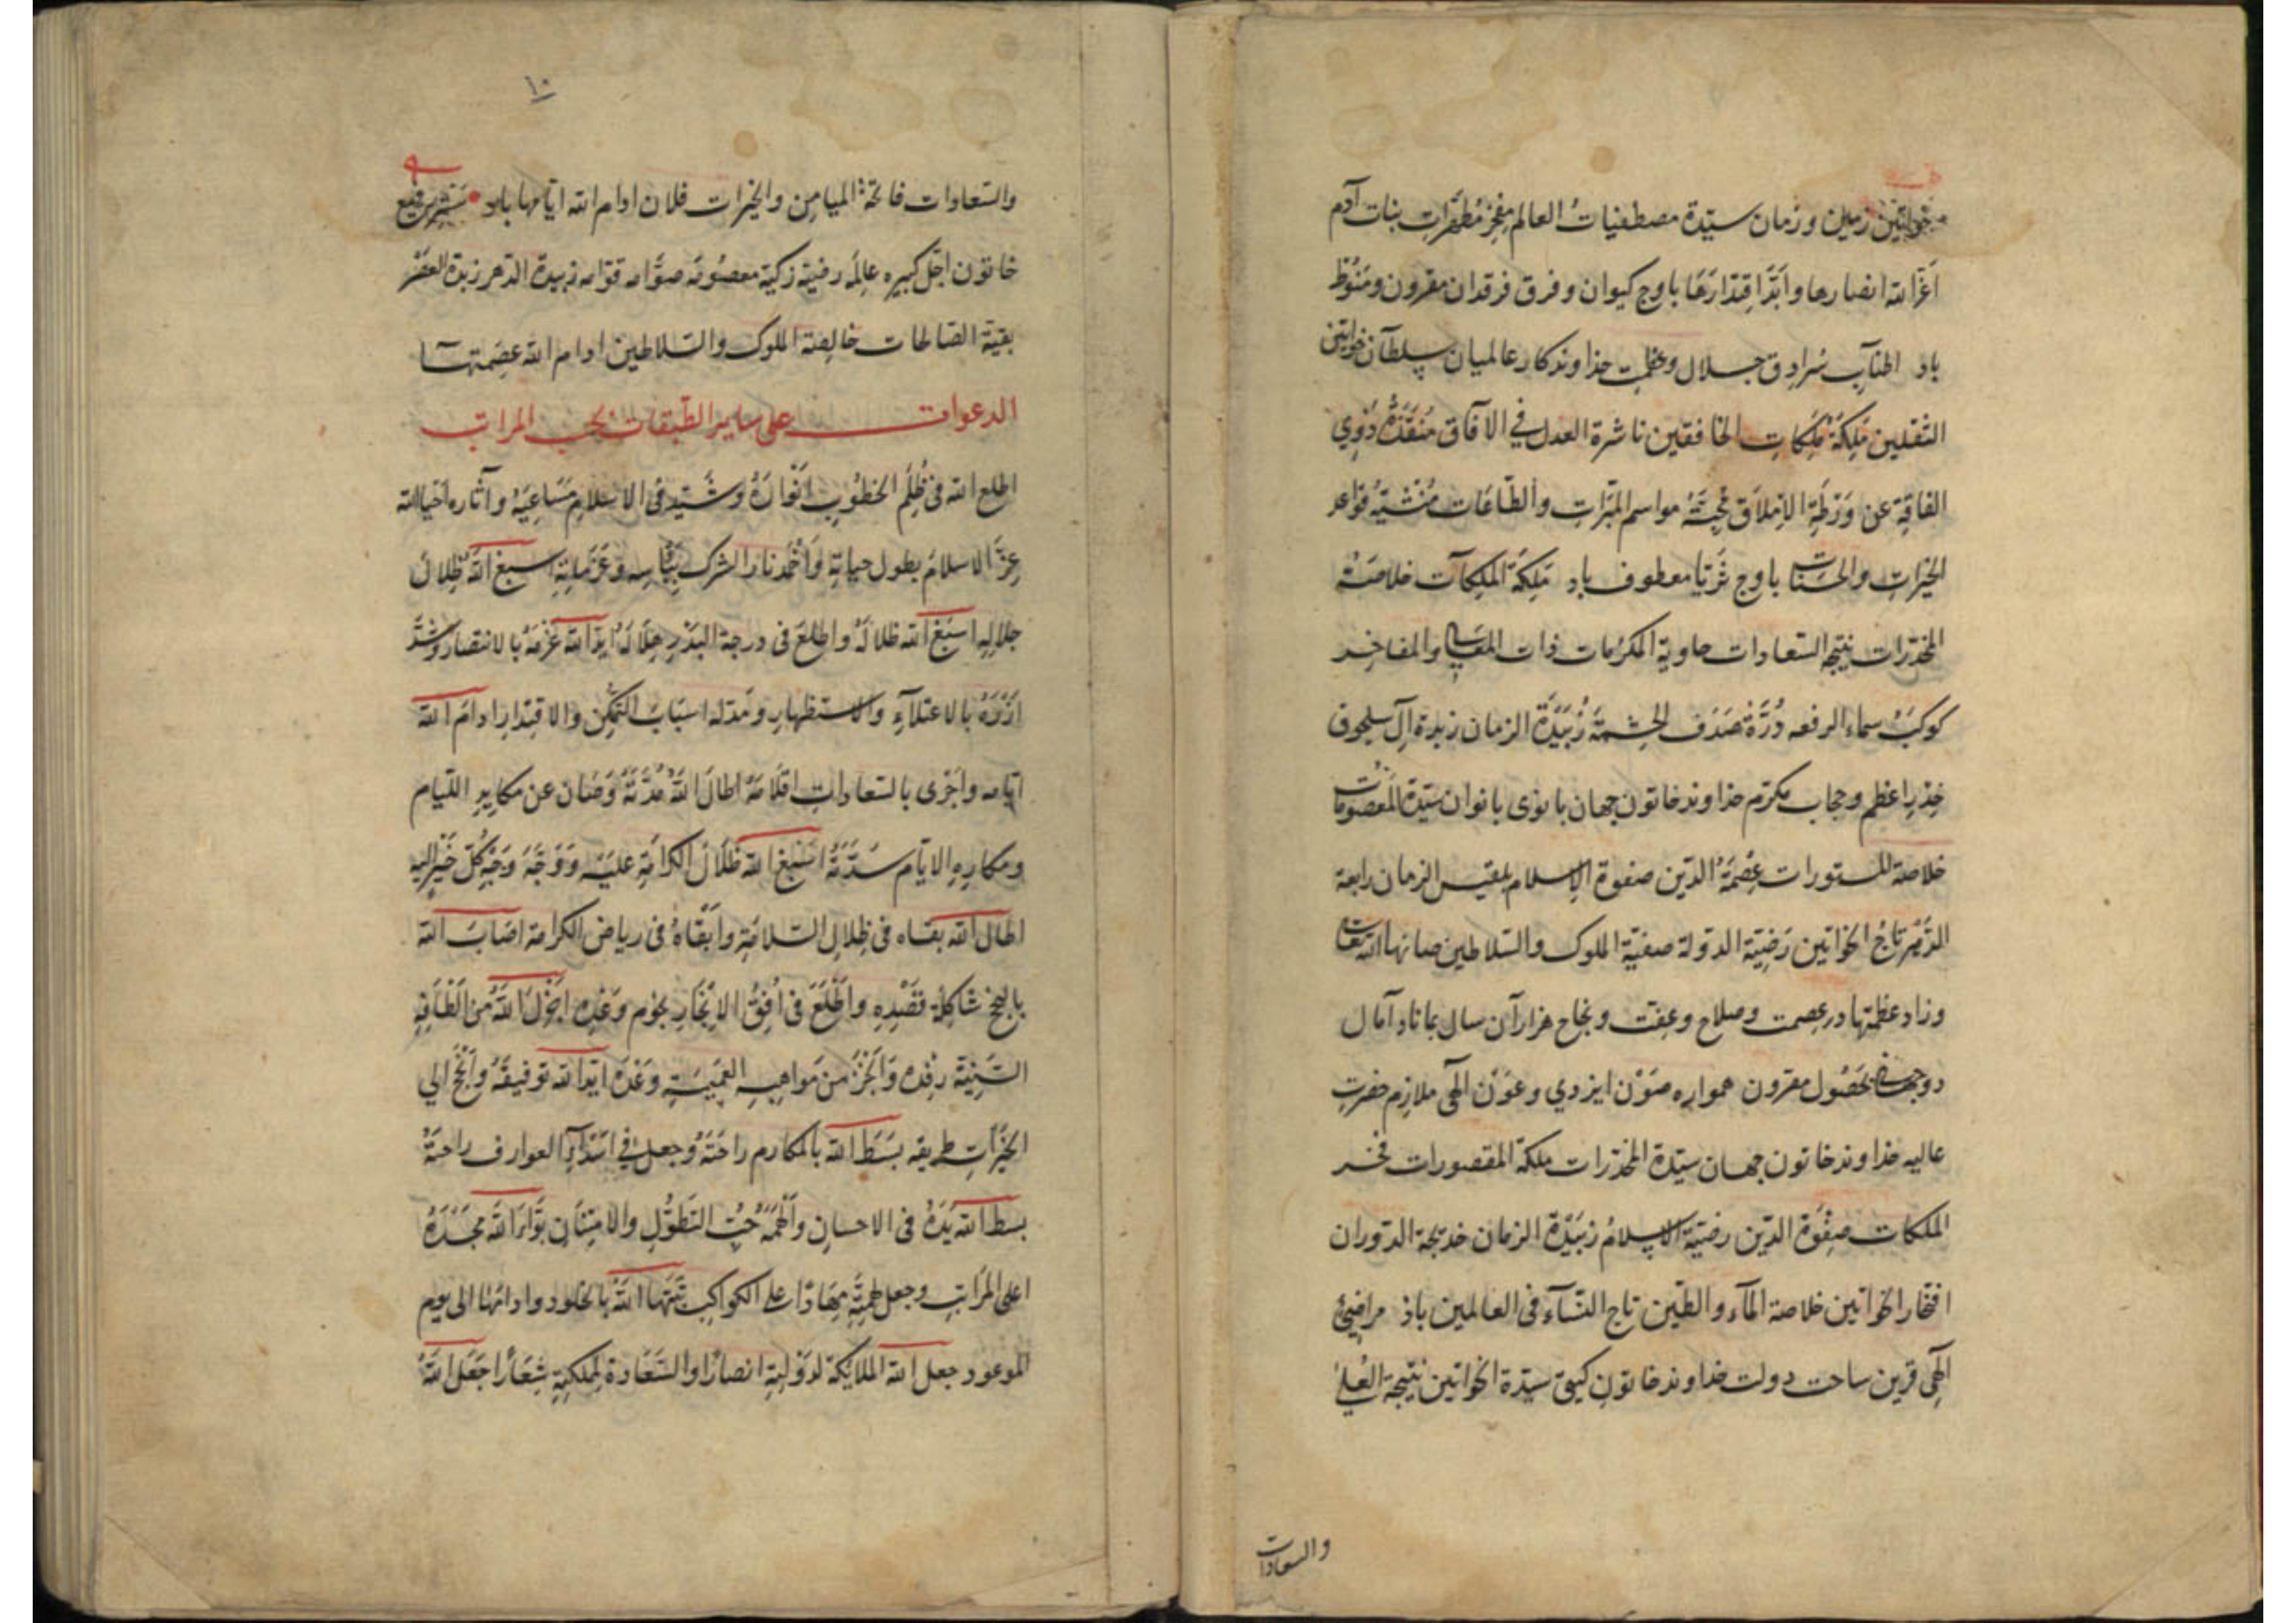 خواتین زمین و زمان سیّدة مصطفیات العالم مفخر مطهّرات بنات آدم
اعزّ الله انصارها و ابّد اقتدارها باوج کیوان و فرق فرقدان مقرون و منوط
باد اطناب سرادق جلال و عظمت خداوندکار عالمیان سلطان خواتین
الثقلین ملکة ملکات الخافقین ناشرة العدل فی الآفاق منقذة ذوی
الفاقة عن ورطة الاملاق محیّة مواسم المبرّات والطّاعات منشیة قواعد
الخیرات والحسنات باوج ثریّا معطوف باد ملکة الملکات خلاصة
المخدّرات نتیجة السعادات حاویة المکرمات ذات المعالی والمفاخر
کوکب سماء الرفعه درّة صدف الحشمة زبیدة الزمان زبدة آل سلجوق
خدر اعظم و حجاب مکرّم خداوند خاتون جهان بانوی بانوان سیّدة المعصومات
خلاصة المستورات عصمة الدّین صفوة الاسلام بلقیس الزمان رابعة
الدّهر تاج الخواتین رضیّة الدولة صفیّة الملوک والسّلاطین صانها الله تعالی
وزاد عظمتها در عصمت و صلاح و عفت و نجاح هزاران سال بماناد آمال
دوجهانی بحصول مقرون همواره صون ایزدی و عون الهی ملازم حضرت
عالیه خداوند خاتون جهان سیّدة المخدّرات ملکة المقصورات فخر
الملکات صفوة الدّین رضیّة الاسلام زبیدة الزمان خدیجة الدوران
افتخار الخواتین خلاصة المآء والطّین تاج النّسآء فی العالمین باذ مراضئ
الهی قرین ساحت دولت خداوند خاتون کیتی سیّدة الخواتین نتیجة العلی
والسعادات
۱۰
والسّعادات فاتحة المیامن والخیرات فلان ادام الله ایّامها باد ستر رفیع
خاتون اجلّ کبیره عالمه رضیّة زکیّة معصومه صوّامه قوّامه زبیدة الدّهر زبدة العصر
بقیّة الصّالحات خالصة الملوک والسّلاطین ادام الله عصمتها
الدعوات علی سایر الطّبقات بحسب المراتب
اطلع الله فی ظلم الخطوب انواره وشیّد فی الاسلام مساعیه وآثاره احیا الله
عزّ الاسلام بطول حیاته واخمد نار الشرک بباسه وعزماته اسبغ الله ظلال
جلاله اسبغ الله ظلاله واطلع فی درجة البدر جلاله ایّد الله عزمه بالانتصار وشدّ
ازره بالاعتلآء والاستظهار ومدّ له اسباب التمکّن والاقتدار ادام الله
ایّامه واجری بالسّعادات اقلامه اطال الله مدّته وصان عن مکاید اللّیام
ومکاره الایّام سدّته اسبغ الله ظلال الکرامة علیه ووجّه وجه کلّ خیر الیه
اطال الله بقاه فی ظلال السّلامة وابقاه فی ریاض الکرامة اصاب الله
بالنجح شاکلة قصده واطلع فی افق الانجاز نجوم وعده اجزل الله من الطافه
السّنیّة رفده وانجز من مواهبه العمیمة وعده ایّد الله توفیقه وانهج الی
الخیرات طریقه بسط الله بالمکارم راحته وجعل فی اسدآء العوارف راحته
بسط الله یده فی الاحسان والهمه حبّ التطوّل والامتنان بوّأ الله مجده
اعلی المراتب وجعل همّته مهادا علی الکواکب ثبّتها الله بالخلود وادامها الی یوم
الموعود جعل الله الملایکة لدولته انصارا والسّعادة لملکته شعارا جعل الله